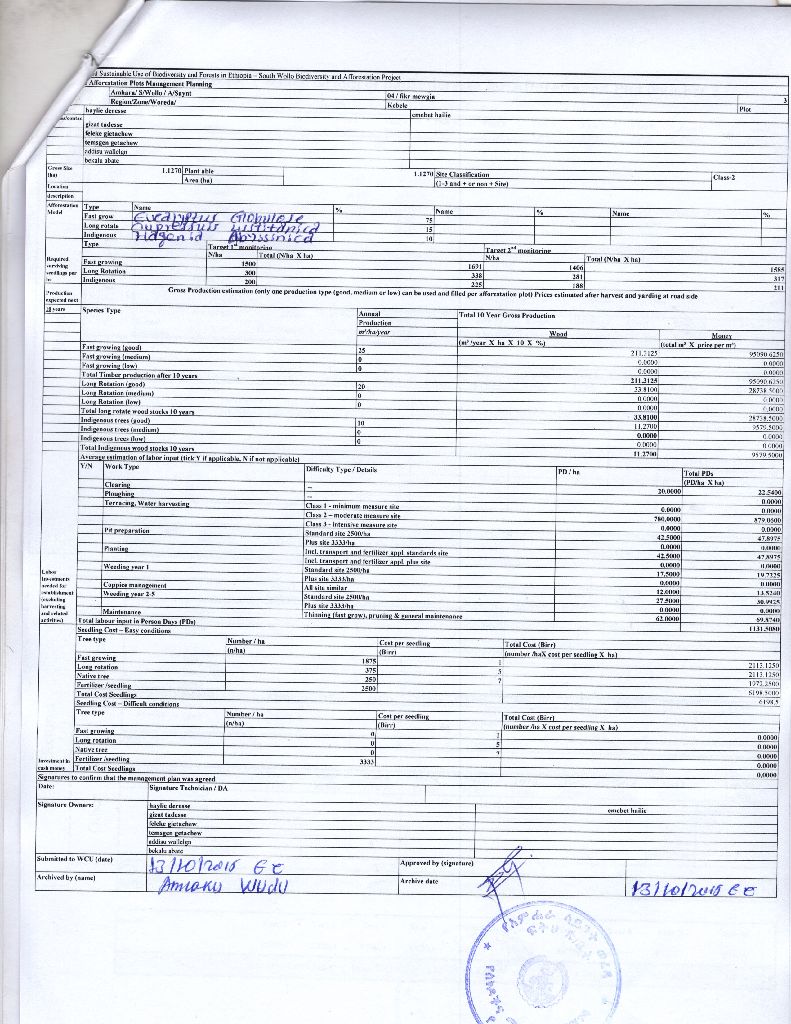 Sustainable Use of Biodiversity and Forests in Ethiopia – South Wollo Biodiversity and Afforestation Project
Afforestation Plots Management Planning
Amhara/ S/Wollo / A/Saynt 04 / fikr mewgia 3
Region/Zone/Woreda/ Kebele Plot
haylie deresse emebet hailie
gizat tadesse
feleke gietachew
temsgen getachew
addisu wallelgn
bekalu abate
Gross Size (ha) 1.1270 Plant able Area (ha) 1.1270 Site Classification (1-3 and + or non + Site) Class-2
Location description
Afforestation Model Type Name % Name % Name %
Fast grow Eucalyptus Globulese 75
Long rotate Cupressus lusitanica 15
Indigenous Hagenia Abyssinica 10
Type Target 1st monitoring Target 2nd monitoring
N/ha Total (N/ha X ha) N/ha Total (N/ha X ha)
Required surviving seedlings per
Fast growing 1500 1691 1406 1585
Long Rotation 300 338 281 317
Indigenous 200 225 188 211
Gross Production estimation (only one production type (good, medium or low) can be used and filled per afforestation plot) Prices estimated after harvest and yarding at road side
Production expected next 10 years
Species Type Annual Production m³/ha/year Total 10 Year Gross Production
Wood Money
(m³/year X ha X 10 X %) (total m³ X price per m³)
Fast growing (good) 25 211.3125 95090.6250
Fast growing (medium) 0 0.0000 0.0000
Fast growing (low) 0 0.0000 0.0000
Total Timber production after 10 years 211.3125 95090.6250
Long Rotation (good) 20 33.8100 28738.5000
Long Rotation (medium) 0 0.0000 0.0000
Long Rotation (low) 0 0.0000 0.0000
Total long rotate wood stocks 10 years 33.8100 28738.5000
Indigenous trees (good) 10 11.2700 9579.5000
Indigenous trees (medium) 0 0.0000 0.0000
Indigenous trees (low) 0 0.0000 0.0000
Total Indigenous wood stocks 10 years 11.2700 9579.5000
Average estimation of labor input (tick Y if applicable, N if not applicable)
Y/N Work Type Difficulty Type / Details PD / ha Total PDs (PD/ha X ha)
Clearing -- 20.0000 22.5400
Ploughing -- 0.0000
Terracing, Water harvesting Class 1 - minimum measure site 0.0000 0.0000
Class 2 – moderate measure site 780.0000 879.0600
Class 3 - intensive measure site 0.0000 0.0000
Pit preparation Standard site 2500/ha 42.5000 47.8975
Plus site 3333/ha 0.0000 0.0000
Planting Incl. transport and fertilizer appl. standards site 42.5000 47.8975
Incl. transport and fertilizer appl. plus site 0.0000 0.0000
Weeding year 1 Standard site 2500/ha 17.5000 19.7225
Plus site 3333/ha 0.0000 0.0000
Coppice management All site similar 12.0000 13.5240
Weeding year 2-5 Standard site 2500/ha 27.5000 30.9925
Plus site 3333/ha 0.0000 0.0000
Maintenance Thinning (fast grow), pruning & general maintenance 62.0000 69.8740
Labor Investments needed for establishment (excluding harvesting and related activities)
Total labour input in Person Days (PDs) 1131.5080
Seedling Cost – Easy conditions
Tree type Number / ha (n/ha) Cost per seedling (Birr) Total Cost (Birr) (number /haX cost per seedling X ha)
Fast growing 1875 1 2113.1250
Long rotation 375 5 2113.1250
Native tree 250 7 1972.2500
Fertilizer /seedling 2500
Total Cost Seedlings 6198.5000
Seedling Cost – Difficult conditions 6198.5
Tree type Number / ha (n/ha) Cost per seedling (Birr) Total Cost (Birr) (number /ha X cost per seedling X ha)
Fast growing 0 1 0.0000
Long rotation 0 5 0.0000
Native tree 0 7 0.0000
Fertilizer /seedling 3333 0.0000
Investment in cash money Total Cost Seedlings 0.0000
Signatures to confirm that the management plan was agreed
Date: Signature Technician / DA
Signature Owners: haylie deresse emebet hailie
gizat tadesse
feleke gietachew
temsgen getachew
addisu wallelgn
bekalu abate
Submitted to WCU (date) 13/10/2015 EC Approved by (signature)
Archived by (name) Amlaku Wudu Archive date 13/10/2015 EC